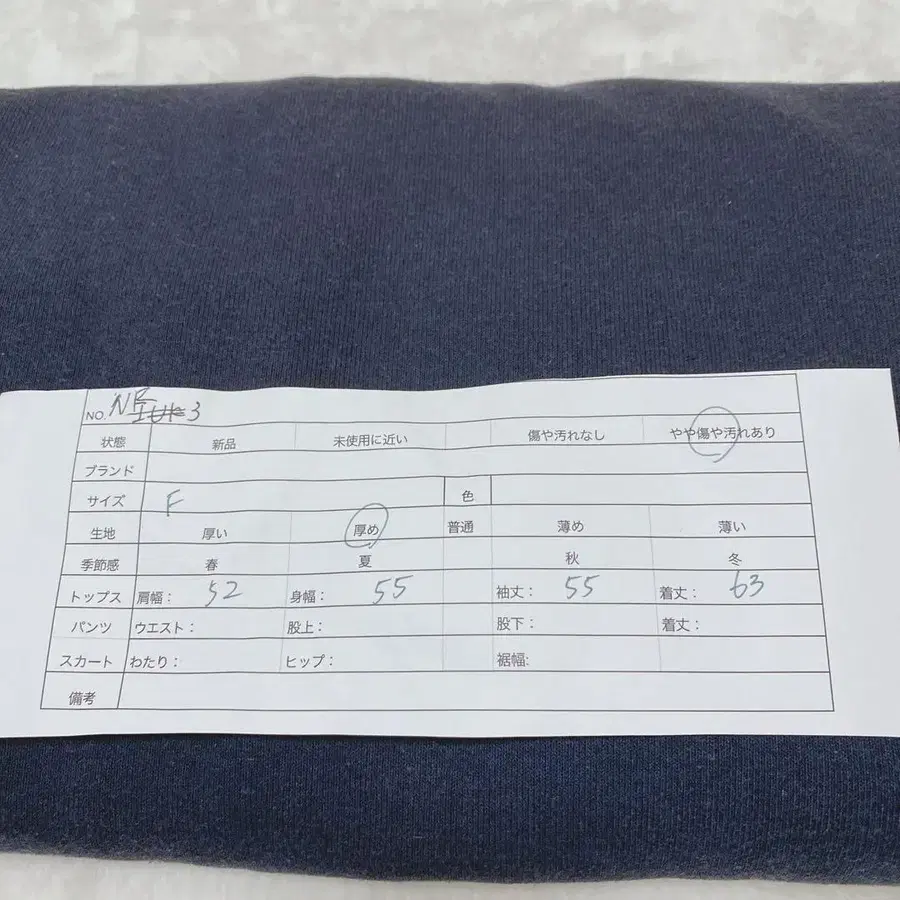 NO. NR 3
状態 新品 未使用に近い 傷や汚れなし やや傷や汚れあり
ブランド
サイズ F 色
生地 厚い 厚め 普通 薄め 薄い
季節感 春 夏 秋 冬
トップス 肩幅： 52 身幅： 55 袖丈： 55 着丈： 63
パンツ ウエスト： 股上： 股下： 着丈：
スカート わたり： ヒップ： 裾幅:
備考